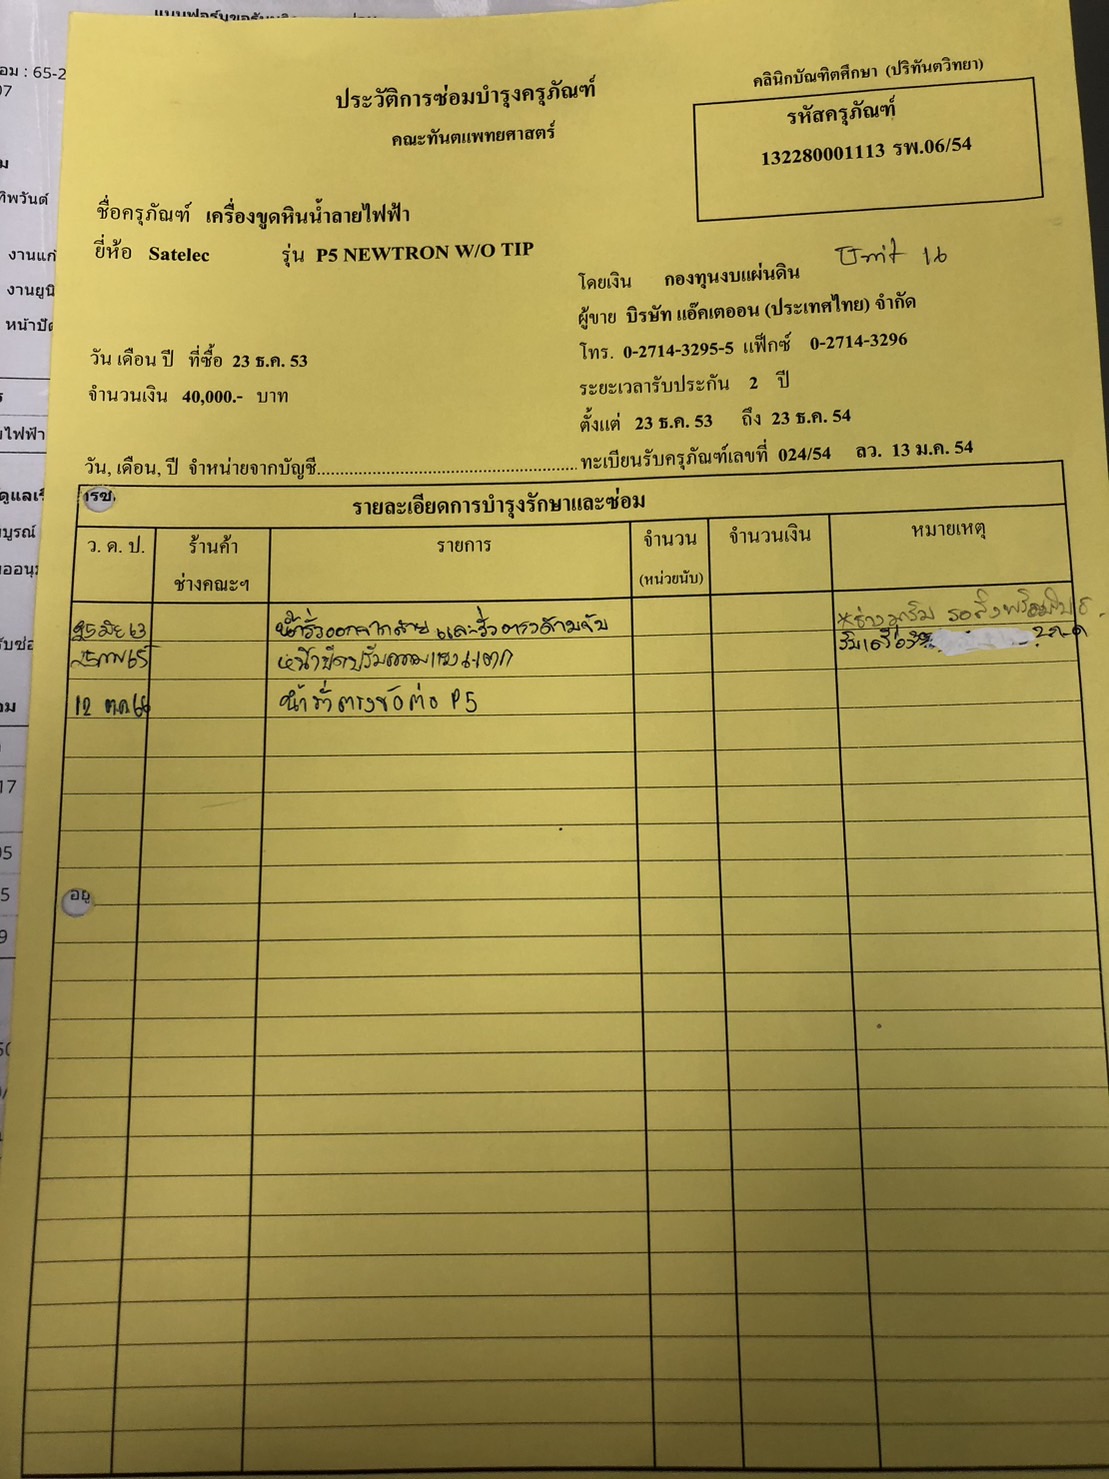 แบบฟอร์มขอรับบริ
อม : 65-2
07
ม
ทิพวันต์
งานแก้
งานยูนิ
หน้าปัด
ร
มไฟฟ้า
ดูแลเรื
บูรณ์
ออนุม
รับซ่อ
อม
17
05
5
9
คลินิกบัณฑิตศึกษา (ปริทันตวิทยา)
ประวัติการซ่อมบำรุงครุภัณฑ์
คณะทันตแพทยศาสตร์
รหัสครุภัณฑ์
132280001113 รพ.06/54
ชื่อครุภัณฑ์ เครื่องขูดหินน้ำลายไฟฟ้า
ยี่ห้อ Satelec รุ่น P5 NEWTRON W/O TIP
Unit 16
โดยเงิน กองทุนงบแผ่นดิน
ผู้ขาย บิรษัท แอ๊คเตออน (ประเทศไทย) จำกัด
วัน เดือน ปี ที่ซื้อ 23 ธ.ค. 53
โทร. 0-2714-3295-5 แฟ็กซ์ 0-2714-3296
จำนวนเงิน 40,000.- บาท
ระยะเวลารับประกัน 2 ปี
ตั้งแต่ 23 ธ.ค. 53 ถึง 23 ธ.ค. 54
วัน, เดือน, ปี จำหน่ายจากบัญชี.................................................. ทะเบียนรับครุภัณฑ์เลขที่ 024/54 ลว. 13 ม.ค. 54
รายละเอียดการบำรุงรักษาและซ่อม
ว. ด. ป. ร้านค้า รายการ จำนวน จำนวนเงิน หมายเหตุ
ช่างคณะฯ (หน่วยนับ)
25 มิย 63 น้ำรั่วออกจากสาย และรั่วตรงด้ามจับ
25 กพ 65 หน้าปัดปรับความแรงแตก
12 ตค 66 น้ำรั่วตรงข้อต่อ P5